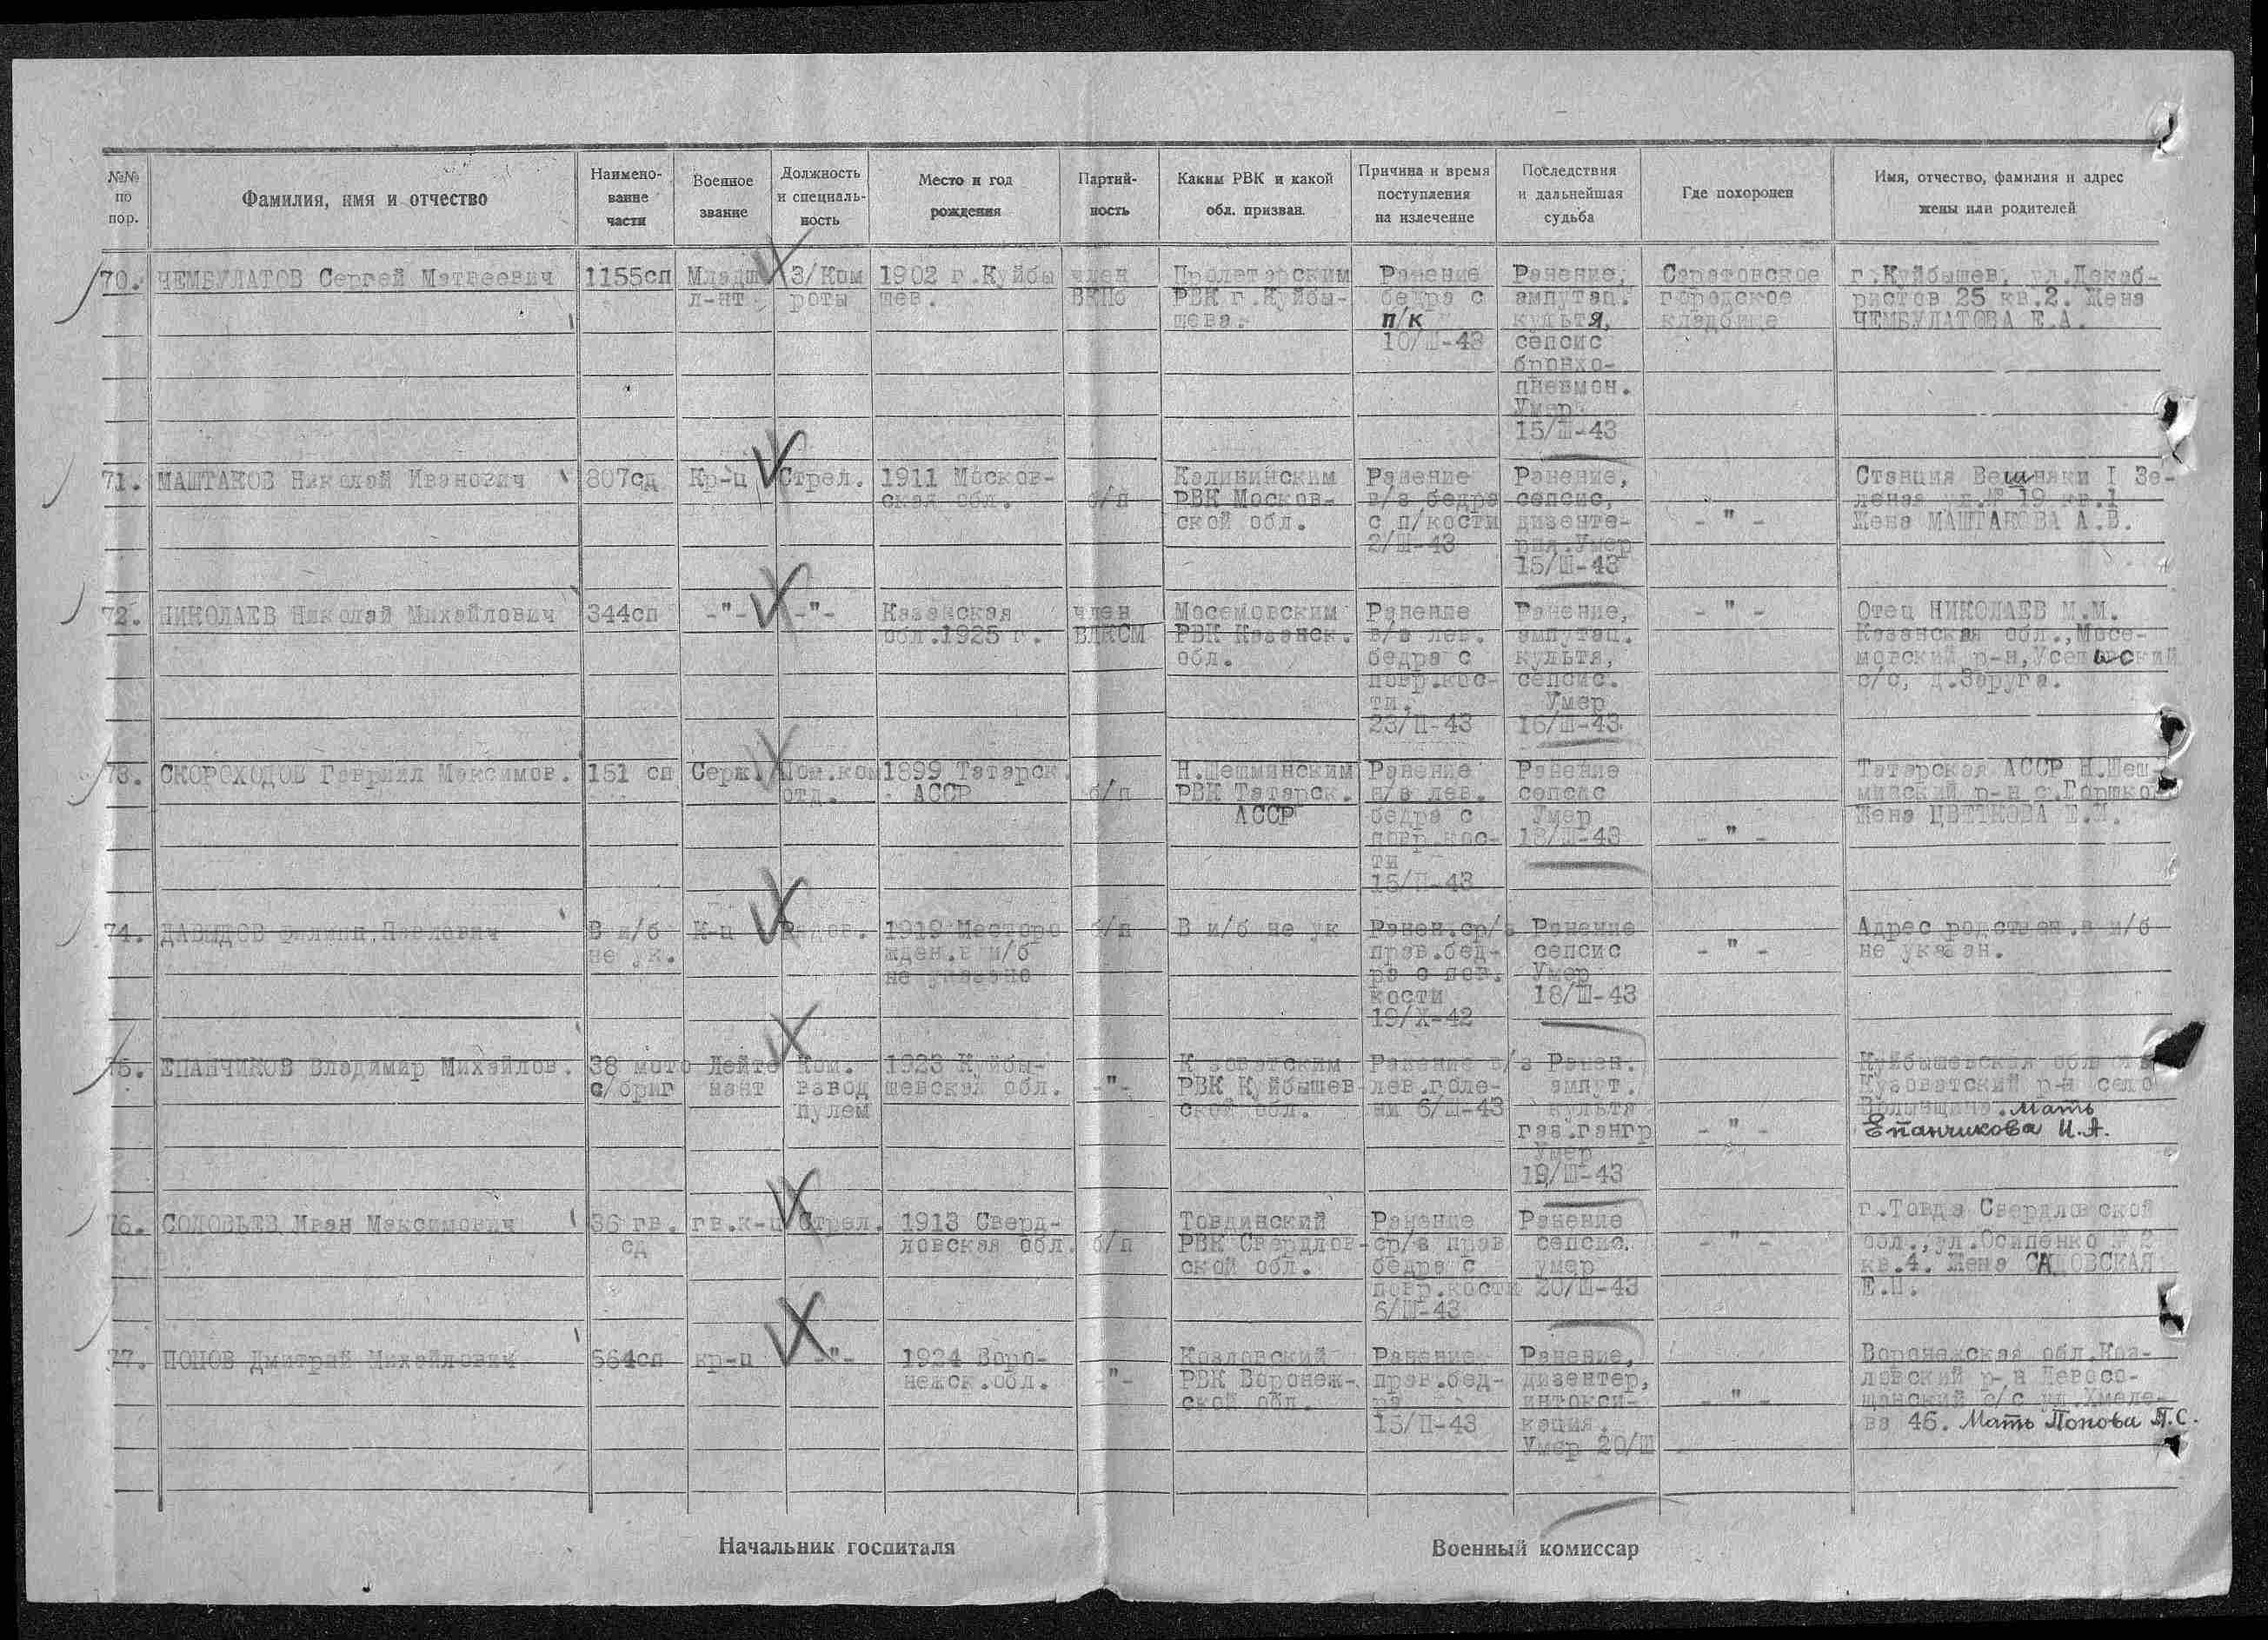 №№ по пор.
Фамилия, имя и отчество
Наимено-
вание
части
Военное
звание
Должность
и специаль-
ность
Место и год
рождения
Партий-
ность
Каким РВК и какой
обл. призван.
Причина и время
поступления
на излечение
Последствия
и дальнейшая
судьба
Где похоронен
Имя, отчество, фамилия и адрес
жены или родителей
70.
ЧЕМБУЛАТОВ Сергей Матвеевич
1155сп
Младш
л-нт
З/Ком
роты
1902 г.Куйбы
шев.
член
ВКПб
Пролетарским
РВК г.Куйбы-
шева.
Ранение
бедра с
п/к
10/Ш-43
Ранение,
ампутац.
культя,
сепсис
бронхо-
пневмон.
Умер
15/Ш-43
Саратовское
городское
кладбище
г.Куйбышев, ул.Декаб-
ристов 25 кв.2. Жена
ЧЕМБУЛАТОВА Е.А.
71.
МАШТАКОВ Николай Иванович
807сд
Кр-ц
Стрел.
1911 Москов-
ская обл.
б/п
Калининским
РВК Москов-
ской обл.
Ранение
в/з бедра
с п/кости
2/Ш-43
Ранение,
сепсис,
дизенте-
рия.Умер
15/Ш-43
-"-
Станция Вешняки I Зе-
леная ул.№ 19 кв.1
Жена МАШТАКОВА А.В.
72.
НИКОЛАЕВ Николай Михайлович
344сп
-"-
-"-
Казанская
обл.1925 г.
член
ВЛКСМ
Мосемовским
РВК Казанск.
обл.
Ранение
в/з лев.
бедра с
повр.кос-
ти.
23/П-43
Ранение,
ампутац.
культя,
сепсис.
Умер
16/Ш-43
-"-
Отец НИКОЛАЕВ М.М.
Казанская обл.,Мосе-
мовский р-н,
с/с, д.Заруга.
73.
СКОРОХОДОВ Гавриил Максимов.
151 сп
Серж.
Пом.ком
отд.
1899 Татарск.
АССР
б/п
Н.Шешминским
РВК Татарск.
АССР
Ранение
в/з лев.
бедра с
повр.кос-
ти
15/П-43
Ранение
сепсис
Умер
18/Ш-43
-"-
Татарская АССР Н.Шеш-
минский р-н с.Горшков
Жена ЦВЕТКОВА Е.И.
74.
ДАВЫДОВ Филипп.Павлович
В и/б
не ук.
К-ц
Рядов.
1919 Месторо
жден.в и/б
не указано
б/п
В и/б не ук
Ранен.ср/з
прав.бед-
ра с пов.
кости
19/Х-42
Ранение
сепсис
Умер
18/Ш-43
-"-
Адрес родствен.в и/б
не указан.
75.
ЕПАНЧИКОВ Владимир Михайлов.
38 мото
с/бриг
Лейте
нант
Ком.
взвод
пулем
1923 Куйбы-
шевская обл.
-"-
К зоватским
РВК Куйбышев
ской обл.
Ранение в/з
лев.голе-
ни 6/Ш-43
Ранен.
ампут.
культя
газ.гангр
Умер
19/Ш-43
-"-
Куйбышевская область
Кузоватский р-н село
Волынщина. Мать
Епанчикова И.А.
76.
СОЛОВЬЕВ Иван Максимович
36 гв.
сд
гв.к-ц
Стрел.
1913 Сверд-
ловская обл.
б/п
Товдинский
РВК Свердлов-
ской обл.
Ранение
ср/з прав
бедра с
повр.кости
6/Ш-43
Ранение
сепсис.
умер
20/Ш-43
-"-
г.Товда Свердловской
обл.,ул.Осипенко № 2
кв.4. Жена САДОВСКАЯ
Е.П.
77.
ПОПОВ Дмитрий Михайлович
564сп
кр-ц
-"-
1924 Воро-
нежск.обл.
-"-
Козловский
РВК Воронеж-
ской обл.
Ранение
прав.бед-
ра
15/П-43
Ранение,
дизентер,
интокси-
кация.
Умер 20/Ш
-"-
Воронежская обл.Коз-
ловский р-н Левосо-
щанский с/с ул.Хмеле-
ва 46. Мать Попова П.С.
Начальник госпиталя
Военный комиссар